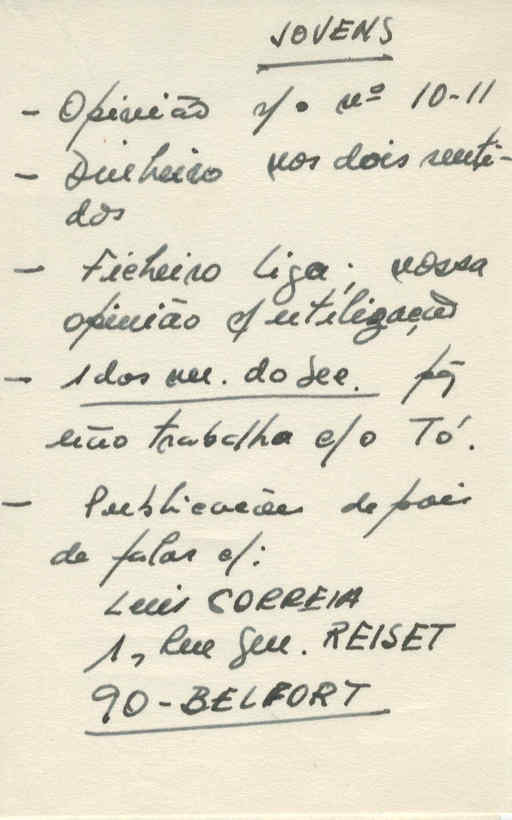 JOVENS
- Opinião s/o nº 10-11
- Dinheiro nos dois senti-
dos
- Ficheiro Liga; nossa
opinião s/ utilização
- 1 dos m. do Sec.
não trabalha c/o Tó.
- Publicações depois
de falar c/:
Luis CORREIA
1, Rue Gen. REISET
90-BELFORT